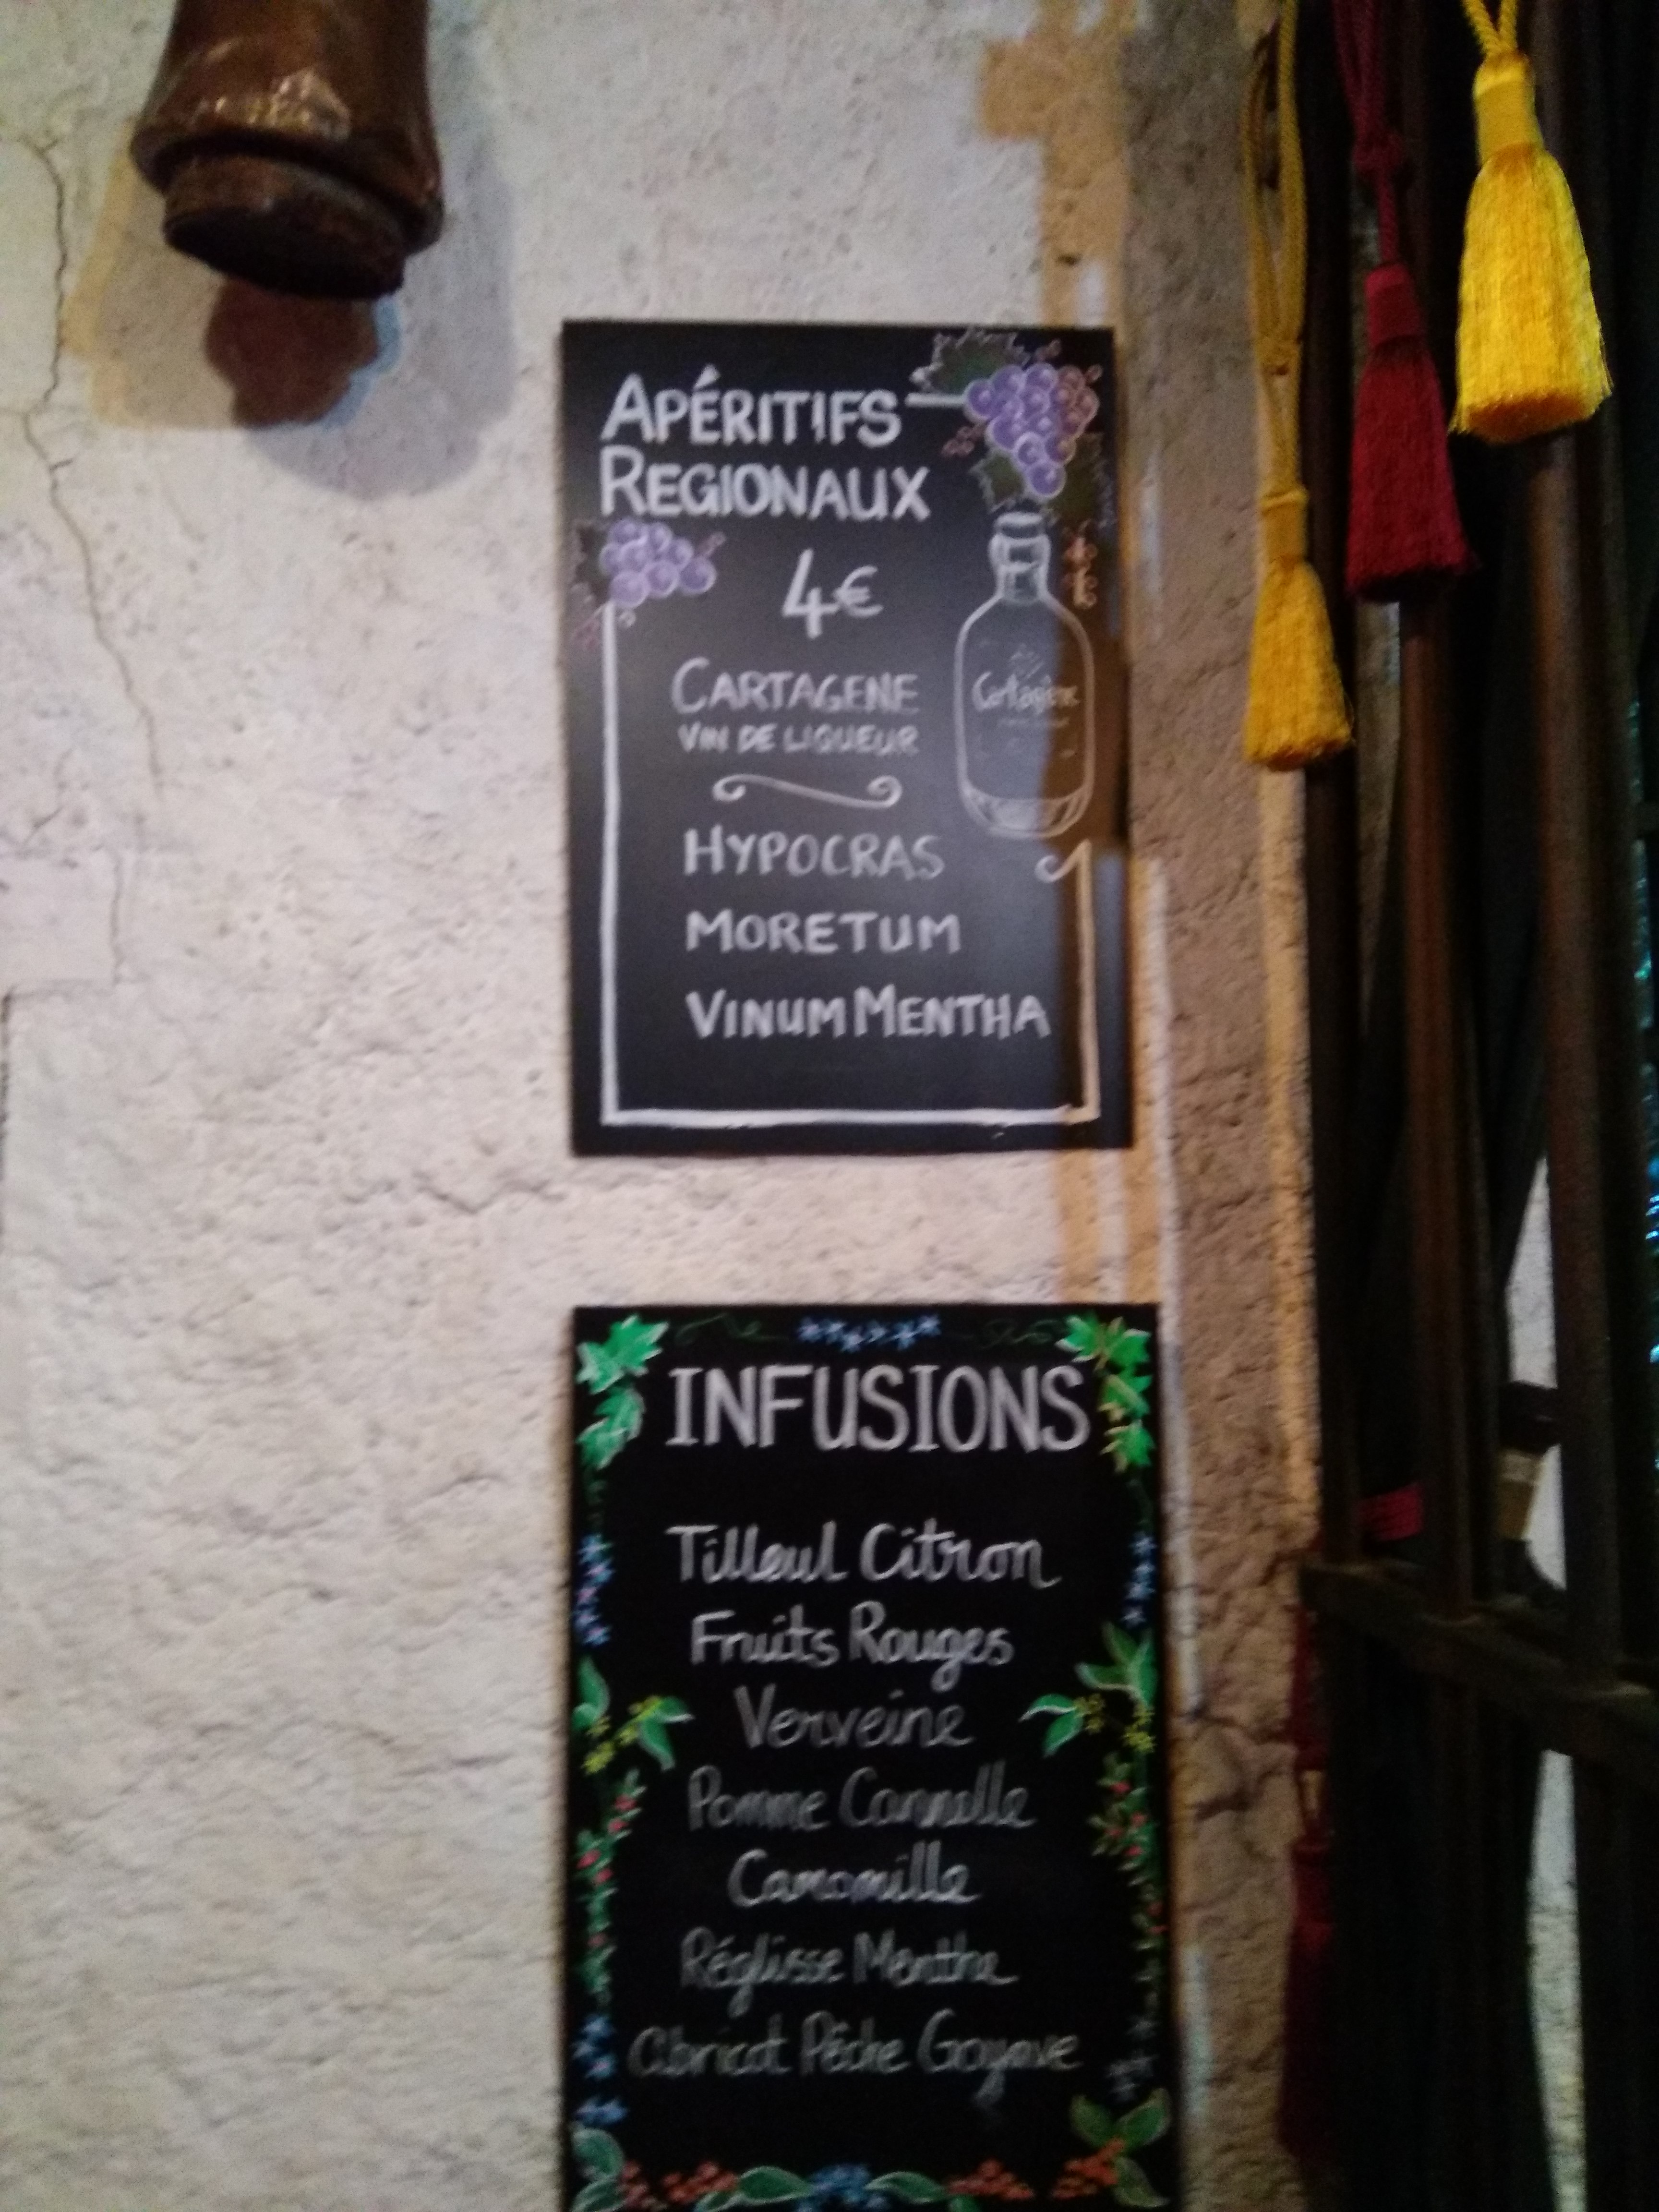 APÉRITIFS
REGIONAUX
4€
CARTAGENE
VIN DE LIQUEUR
Cartagène
HYPOCRAS
MORETUM
VINUM MENTHA
INFUSIONS
Tilleul Citron
Fruits Rouges
Verveine
Pomme Cannelle
Camomille
Réglisse Menthe
Abricot Pêche Goyave